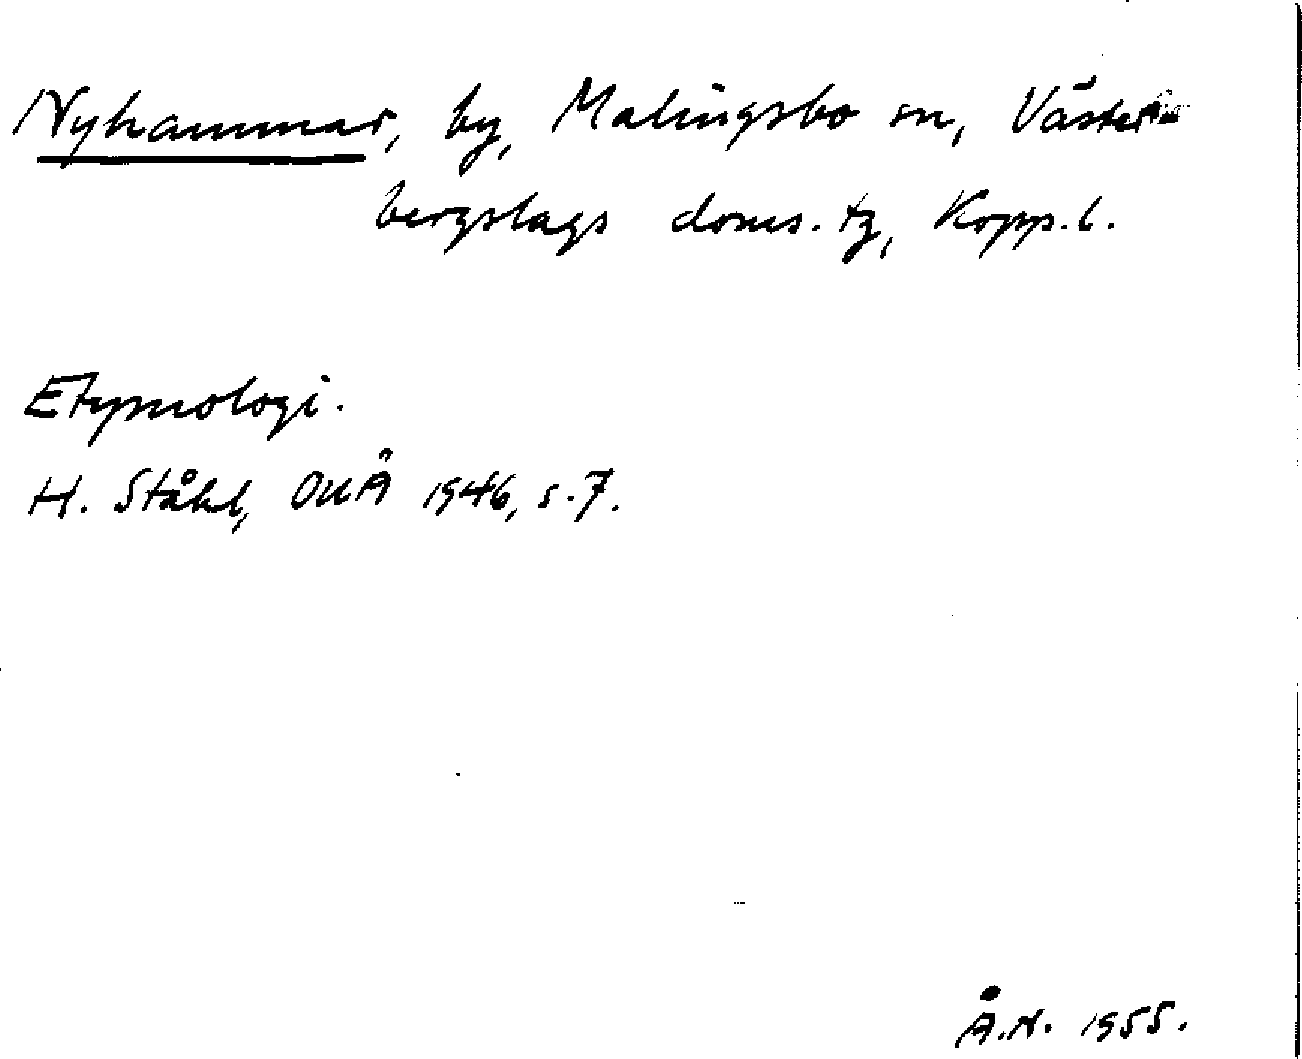 Nyhammar, by, Malingsbo sn, Väster-
bergslags doms. tg, Kopp. l.
Etymologi.
H. Ståhl, ONÅ 1946, s. 7.
Å.N. 1955.